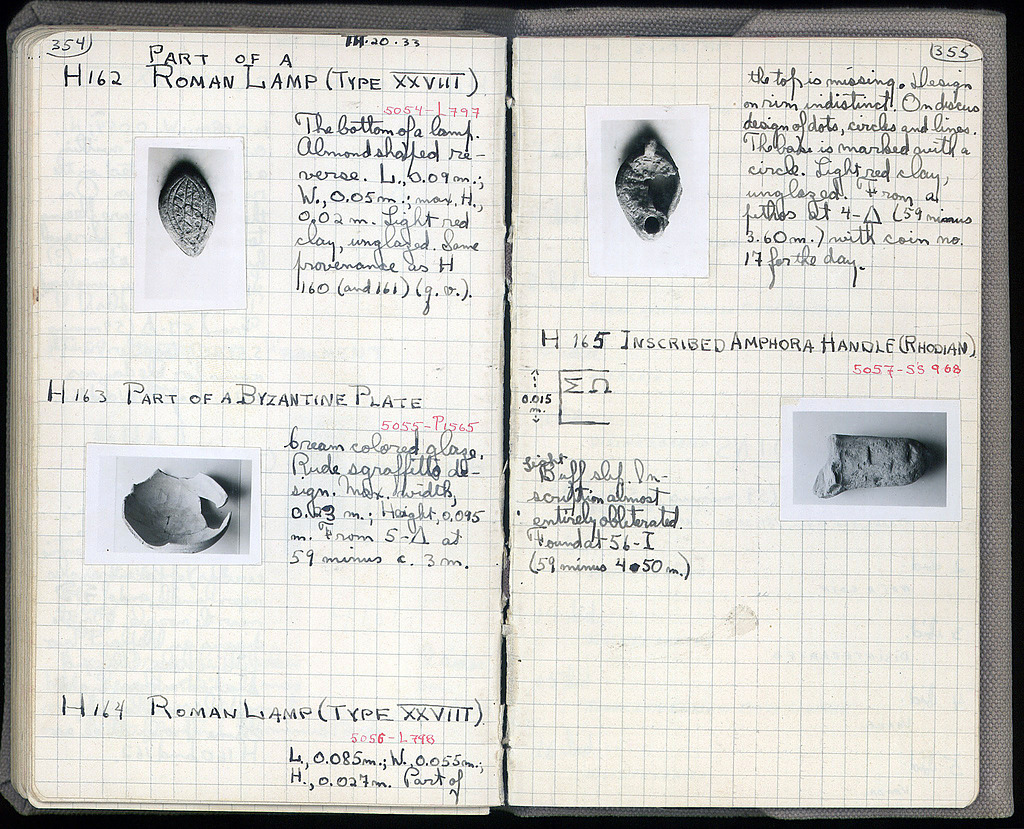 354
III·20·33
PART OF A
H162 ROMAN LAMP (TYPE XXVIII)
5054-L797
The bottom of a lamp.
Almond shaped re-
verse. L., 0.09 m.;
W., 0.05 m.; max. H.,
0.02 m. Light red
clay, unglazed. Same
provenance as H
160 (and 161) (q.v.).
H163 PART OF A BYZANTINE PLATE
5055-P1565
Cream colored glaze.
Rude sgraffitto de-
sign. Max. width,
m.; Height, 0.095
m. From 5-Δ at
59 minus c. 3 m.
H164 ROMAN LAMP (TYPE XXVIII)
5056-L798
L., 0.085m.; W., 0.055m.;
H., 0.027m. Part of
355
the top is missing. Design
on rim indistinct. On discus
design of dots, circles and lines.
The base is marked with a
circle. Light red clay,
unglazed. From a
pithos at 4-Δ (59 minus
3.60 m.) with coin no.
17 for the day.
H 165 INSCRIBED AMPHORA HANDLE (RHODIAN)
5057-SS 968
ΣΩ
0.015
m.
Light
Buff slip. In-
scription almost
entirely obliterated.
Found at 56-I
(59 minus 4.50 m.)